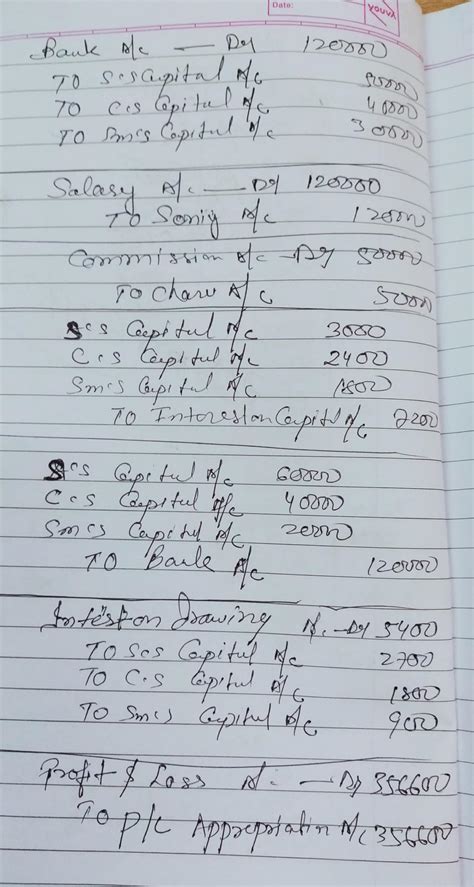 Date:
YOUVA
Bank A/c — Dr 120000
To S's Capital A/c 50000
To C's Capital A/c 40000
To Sm's Capital A/c 30000
Salary A/c — Dr 120000
To Soniy A/c 12000
Commission A/c — Dr 50000
To Charu A/c 5000
S's Capital A/c 3000
C's Capital A/c 2400
Sm's Capital A/c 1800
To Interest on Capital A/c 7200
S's Capital A/c 60000
C's Capital A/c 40000
Sm's Capital A/c 20000
To Bank A/c 120000
Intest on Drawing A. — Dr 5400
To S's Capital A/c 2700
To C's Capital A/c 1800
To Sm's Capital A/c 900
Profit & Loss A. — Dr 356600
To P/L Appropriation A/c 356600